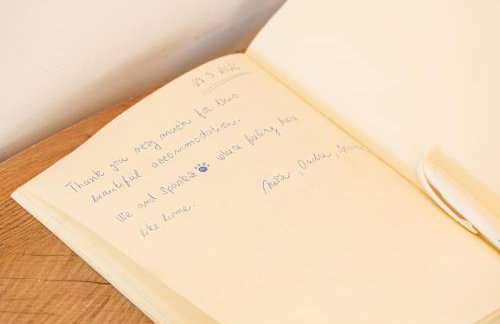 Thank you very much for this
beautiful accommodation.
We and Sparkie where feeling here
like home.
Nora, Ondra,